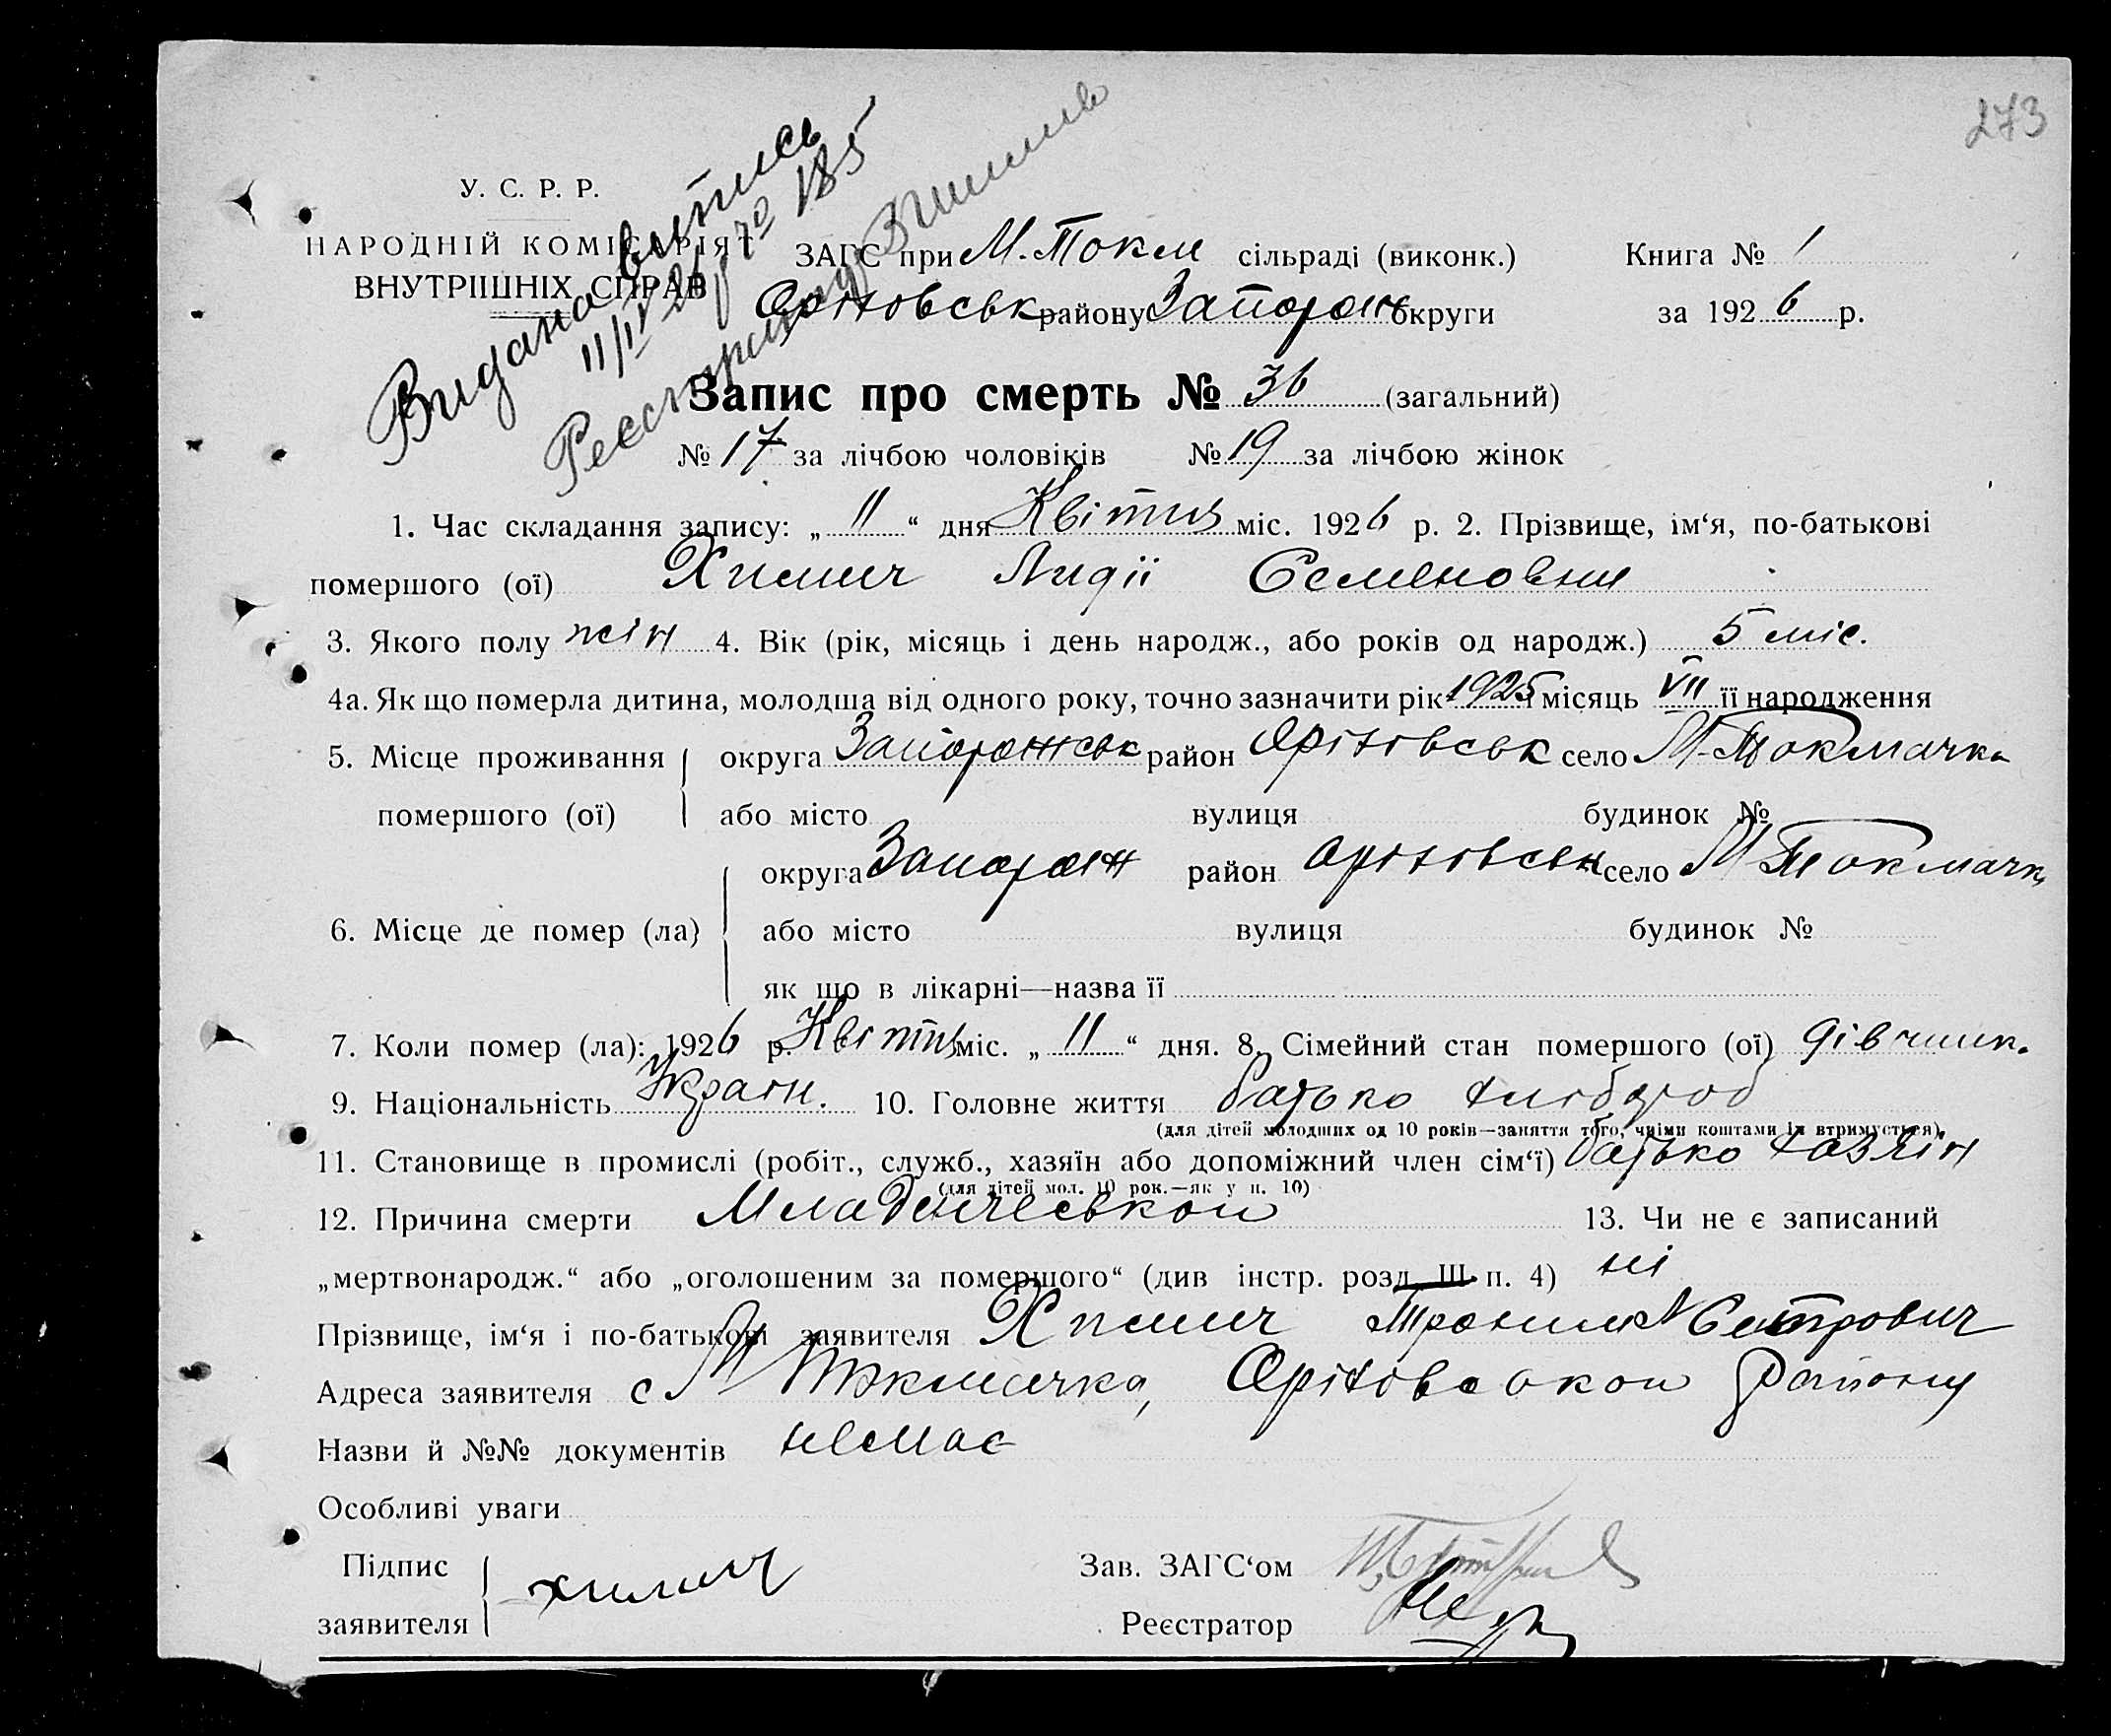 273
Видана випись
11/IV 26 р № 185
У. С. Р. Р.
НАРОДНІЙ КОМІСАРІЯТ
ВНУТРІШНІХ СПРАВ
ЗАГС при М.-Токм сільраді (виконк.) Книга № 1
Оріховськ району Запорож округи за 1926 р.
Запис про смерть № 36 (загальний)
№ 17 за лічбою чоловіків № 19 за лічбою жінок
1. Час складання запису: „ 11 “ дня Квітня міс. 1926 р. 2. Прізвище, ім‘я, по-батькові
помершого (ої) Химич Лидії Семеновни
3. Якого полу жін 4. Вік (рік, місяць і день народж., або років од народж.) 5 міс.
4а. Як що померла дитина, молодша від одного року, точно зазначити рік 1925 місяць VII її народження
5. Місце проживання округа Запорожськ район Оріховськ село М-Токмачка
помершого (ої) або місто вулиця будинок №
округа Запорож район Оріховськ село М Токмачка
6. Місце де помер (ла) або місто вулиця будинок №
як що в лікарні—назва її
7. Коли помер (ла): 1926 р. Квітня міс. „ 11 “ дня. 8. Сімейний стан помершого (ої) дівчина.
9. Національність Україн. 10. Головне життя батько хлібороб
(для дітей молодших од 10 років—заняття того, чиїми коштами їх втримується)
11. Становище в промислі (робіт., служб., хазяїн або допоміжний член сім‘ї) батько хазяїн
(для дітей мол. 10 рок.—як у п. 10)
12. Причина смерти Младенческой 13. Чи не є записаний
„мертвонародж.“ або „оголошеним за помершого“ (див інстр. розд. III п. 4) ні
Прізвище, ім‘я і по-батькові заявителя Химич Трохим
Адреса заявителя с М Токмачка, Оріховського Району
Назви й №№ документів немає
Особливі уваги
Підпис Зав. ЗАГС‘ом
заявителя химич Реєстратор